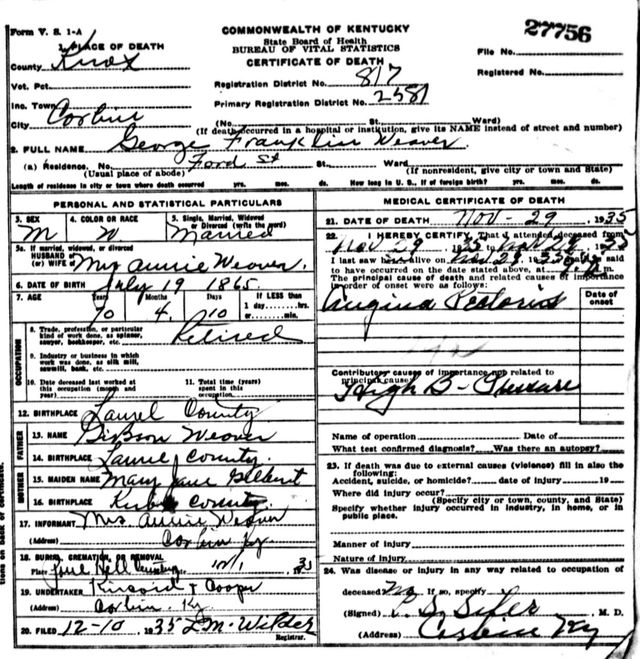 Form V. S. 1-A
COMMONWEALTH OF KENTUCKY
27756
State Board of Health
BUREAU OF VITAL STATISTICS
CERTIFICATE OF DEATH
File No.
Registered No.
1. PLACE OF DEATH
County Knox
Vot. Pct.
Registration District No. 817
Inc. Town
Primary Registration District No. 2581
City Corbin (No. St. Ward)
(If death occurred in a hospital or institution, give its NAME instead of street and number)
2. FULL NAME George Franklin Weaver
(a) Residence. No. Ford St St. Ward
(Usual place of abode) (If nonresident, give city or town and State)
Length of residence in city or town where death occurred yrs. mos. ds. How long in U. S., if of foreign birth? yrs. mos. ds.
PERSONAL AND STATISTICAL PARTICULARS
3. SEX M
4. COLOR OR RACE W
5. Single, Married, Widowed or Divorced (write the word) Married
5a. If married, widowed, or divorced
HUSBAND of
(or) WIFE of Mrs Annie Weaver
6. DATE OF BIRTH July 19 1865
7. AGE Years 70 Months 4 Days 10 If LESS than 1 day, hrs. or min.
OCCUPATION
8. Trade, profession, or particular kind of work done, as spinner, sawyer, bookkeeper, etc. Retired
9. Industry or business in which work was done, as silk mill, sawmill, bank, etc.
10. Date deceased last worked at this occupation (month and year)
11. Total time (years) spent in this occupation
12. BIRTHPLACE Laurel County
FATHER
13. NAME Gibson Weaver
14. BIRTHPLACE Laurel County
MOTHER
15. MAIDEN NAME Mary Jane Gilbert
16. BIRTHPLACE County
17. INFORMANT Mrs Annie Weaver
(Address) Corbin Ky
18. BURIAL, CREMATION, OR REMOVAL
Place Hill Cemetery 35
19. UNDERTAKER & Cooper
(Address) Corbin Ky.
20. FILED 12-10 1935 L M. Wilder
Registrar.
MEDICAL CERTIFICATE OF DEATH
21. DATE OF DEATH Nov - 29, 1935
22. I HEREBY CERTIFY, That I attended deceased from
Nov 29 1935 to Nov 29 1935
I last saw him alive on Nov 29 1935 death is said
to have occurred on the date stated above, at m.
The principal cause of death and related causes of importance
in order of onset were as follows:
Date of onset
Angina Pectoris
Contributory causes of importance not related to
principal cause:
High B- Pressure
Name of operation Date of
What test confirmed diagnosis? Was there an autopsy?
23. If death was due to external causes (violence) fill in also the
following:
Accident, suicide, or homicide? date of injury 19
Where did injury occur?
(Specify city or town, county, and State)
Specify whether injury occurred in industry, in home, or in
public place.
Manner of injury
Nature of injury
24. Was disease or injury in any way related to occupation of
deceased? No If so, specify
(Signed) Siler M. D.
(Address) Corbin Ky
tions on back of certificate.